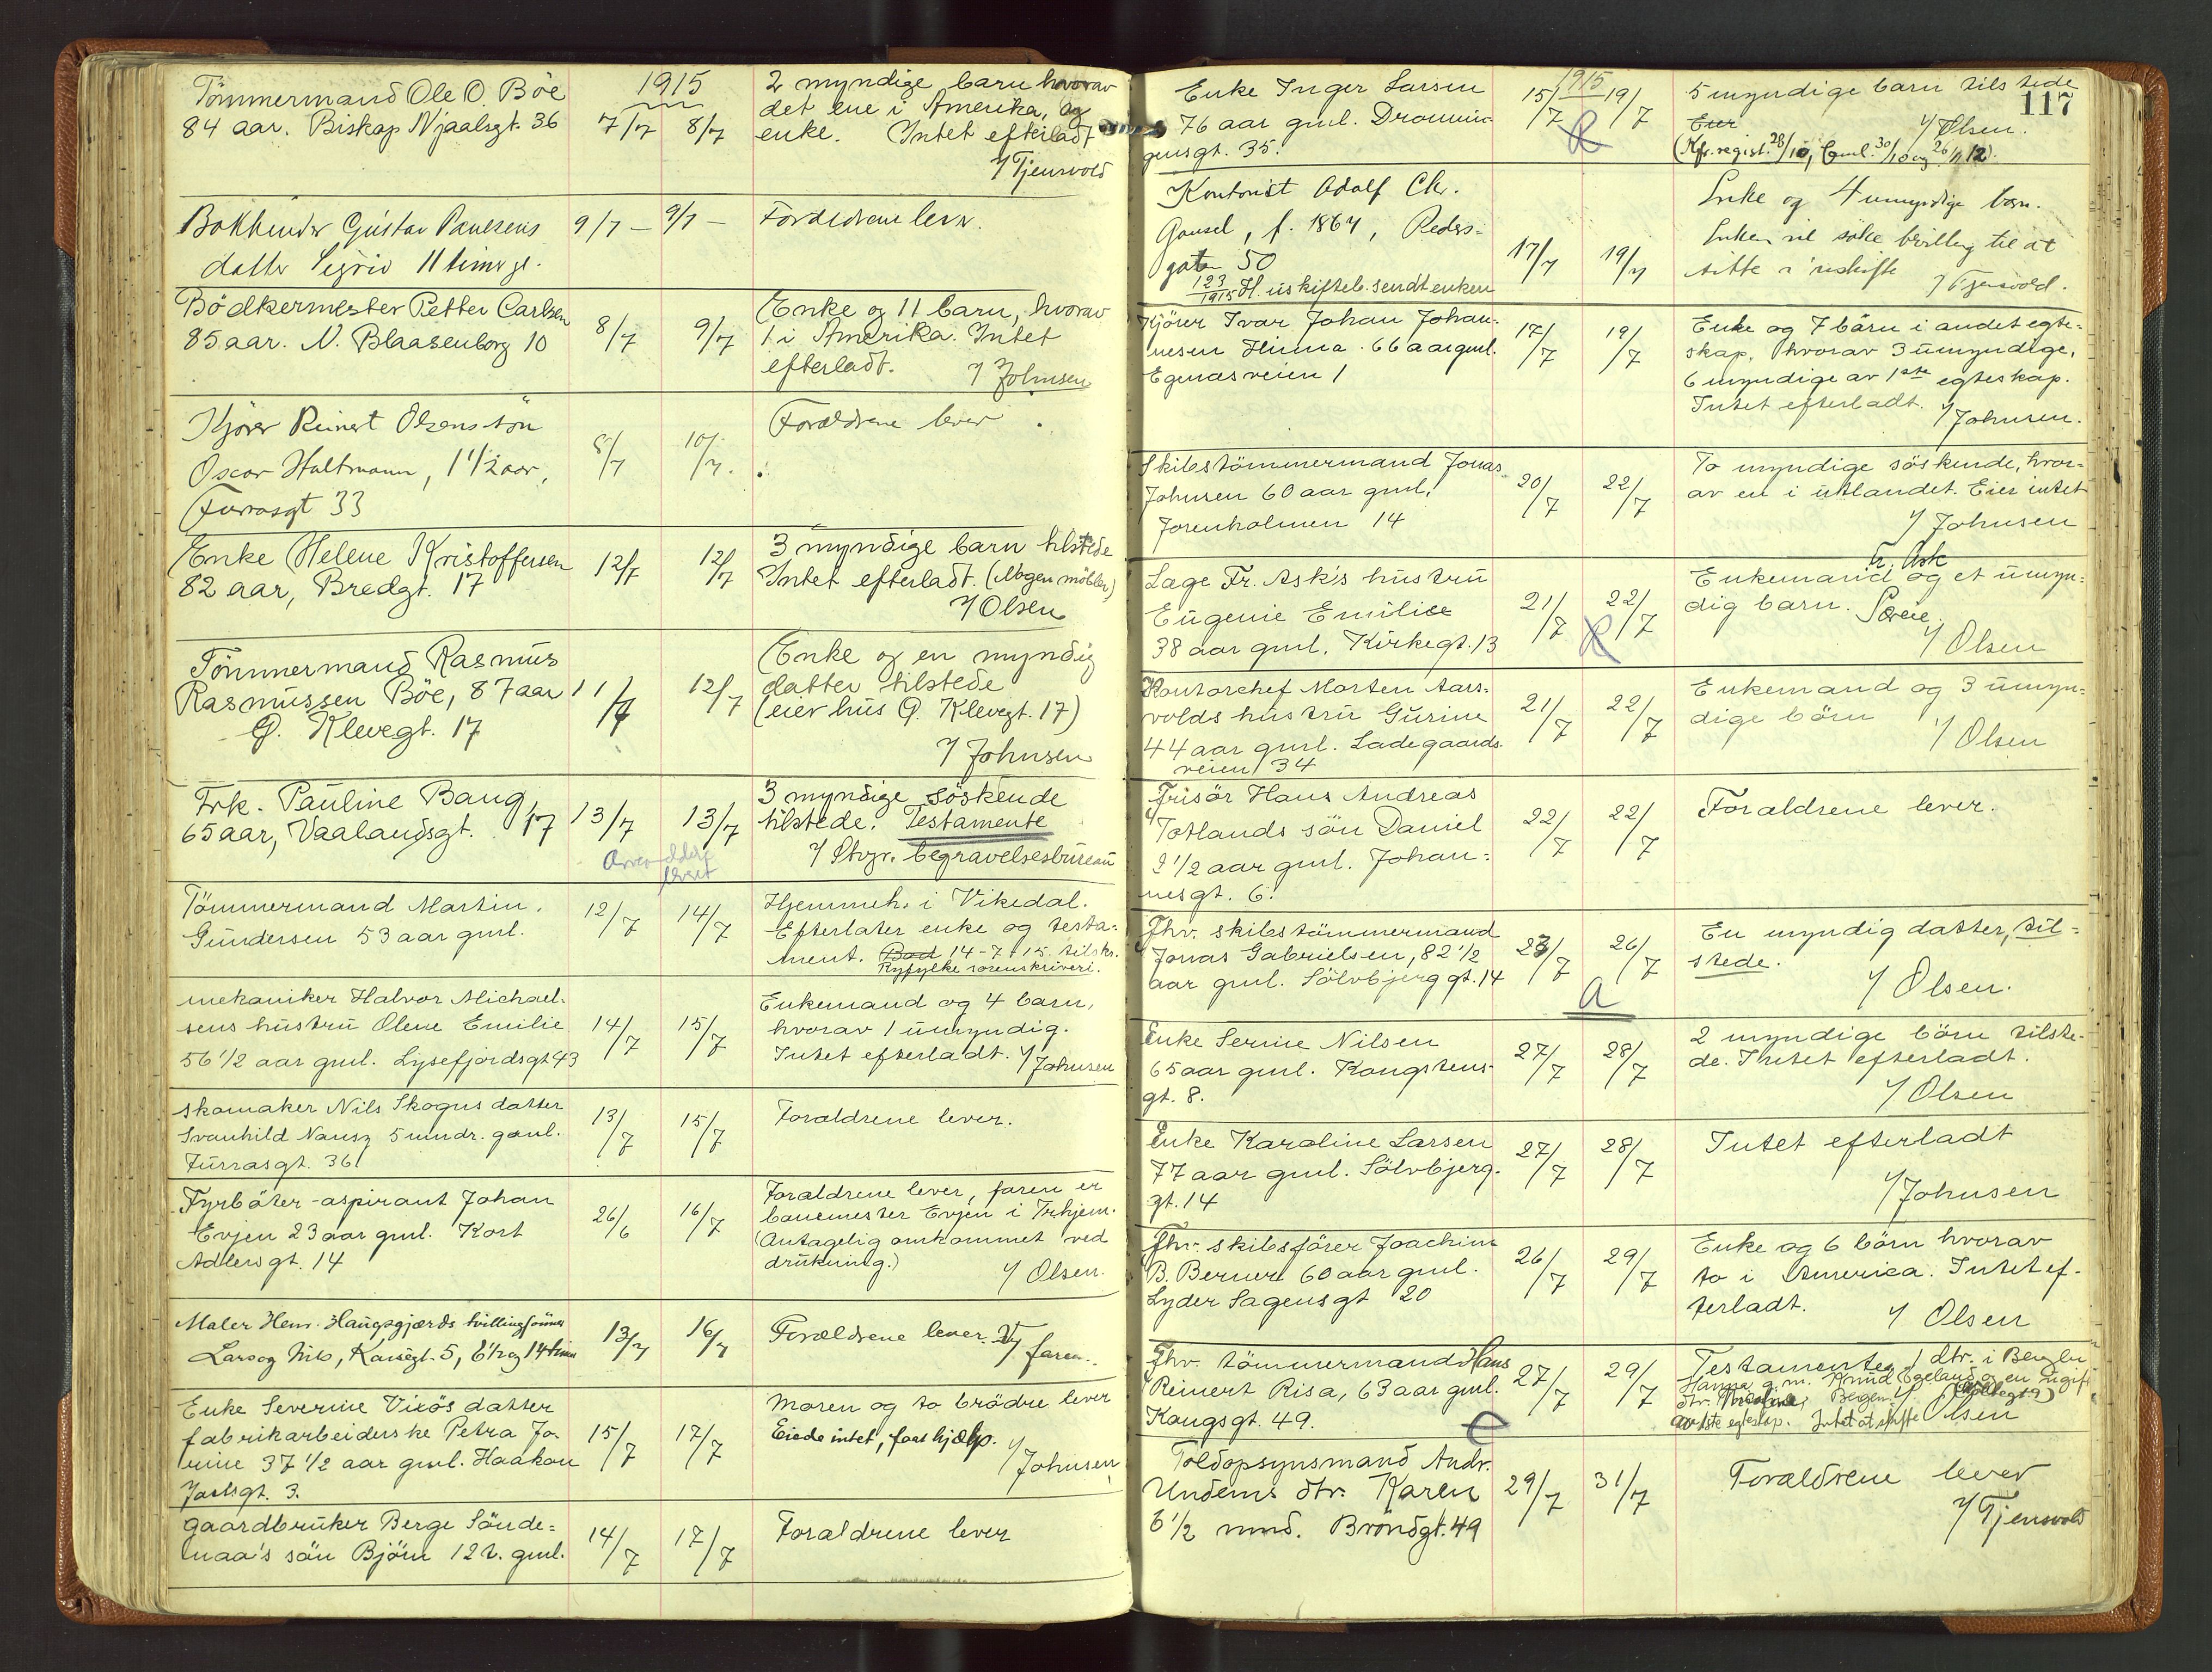 Tömmermand Ole O. Böe
84 aar. Biskop Njaalsgt. 36
1915
7/7 8/7
2 myndige barn hvorav
det ene i Amerika, og
enke. Intet efterladt
V/ Tjensvold
Bokbinder Gustav Paulsens
datter Sigrid 11 timer gl.
9/7 – 9/7 –
Forældrene lever.
Bödkermester Petter Carlsen
85 aar. N. Blaasenborg 10
8/7 9/7
Enke og 11 barn, hvorav
1 i Amerika. Intet
efterladt. V/ Johnsen
Kjörer Reinert Olsens sön
Oscar Haltmann, 1 1/2 aar,
Furrasgt 33
8/7 10/7.
Forældrene lever.
Enke Helene Kristoffersen
82 aar, Bredgt. 17
12/7 12/7
3 myndige barn tilstede
Intet efterladt. (Nogen möbler)
V/ Olsen
Tömmermand Rasmus
Rasmussen Böe, 87 aar
G. Klevegt. 17
11/7 12/7
Enke og en myndig
datter tilstede
(eier hus G. Klevegt. 17)
V/ Johnsen
Frk. Pauline Baug,
65 aar, Vaalandsgt. 17
13/7 13/7
3 myndige söskende
tilstede. Testamente
V/ Stvgr. begravelsesbureau
Tömmermand Martin
Gundersen 53 aar gml.
12/7 14/7
Hjemmeh. i Vikedal.
Efterlater enke og testa-
ment. Bod 14-7-15. tilskr.
Ryfylke sorenskriveri.
mekaniker Halvor Michael-
sens hustru Olene Emilie
56 1/2 aar gml. Lysefjordsgt 43
14/7 15/7
Enkemand og 4 barn,
hvorav 1 umyndig.
Intet efterladt. V/ Johnsen
skomaker Nils Skogns datter
Svanhild Nansy 5 mndr. gaml.
Furrasgt. 36
13/7 15/7
Forældrene lever.
Fyrböter-aspirant Johan
Evjen 23 aar gml. Kort
Adlersgt. 14
26/6 16/7
Forældrene lever, faren er
banemester Evjen i Trhjem.
(Antagelig omkommet ved
drukning.)
V/ Olsen.
Maler Henr. Haugsgjærds tvillingsönner
Lars og Nils, Karsegt. 5, 6 1/2 og 14 timer
13/7 16/7
Forældrene lever. V/ faren.
Enke Severine Vixös datter
fabrikarbeiderske Petra Jo-
rine 37 1/2 aar gml. Haakon
Jarlsgt. 3.
15/7 17/7
Moren og to brödre lever
Eiede intet, faar hjælp.
V/ Johnsen
gaardbruker Berge Sönde-
naa's sön Björn 12 t. gml.
14/7 17/7
Forældrene lever
117
Enke Inger Larsen
76 aar gml. Dronnin-
gensgt. 35.
1915
15/7 19/7
R
5 myndige barn tilstede
Eier
V/ Olsen.
(Kfr. regist. 28/10, Gml. 30/10 og 26/11 12).
Kontorist Adolf Chr.
Gausel, f. 1867, Peders-
gaten 50
123/1915 H. uskifteb. sendt enken
17/7 19/7
Enke og 4 umyndige barn.
Enken vil söke bevilling til at
sitte i uskifte
V/ Tjensvold.
Kjörer Ivar Johan Johan-
nesen Hinna. 66 aar gml.
Egenæsveien 1
17/7 19/7
Enke og 7 börn i andet egte-
skap, hvorav 3 umyndige,
6 myndige av 1ste egteskap.
Intet efterladt. V/ Johnsen.
Skibstömmermand Jonas
Johnsen 60 aar gml.
Jorenholmen 14
20/7 22/7
To myndige söskende, hvor-
av en i utlandet. Eier intet
V/ Johnsen
Læge Fr. Ask's hustru
Eugenie Emilie
38 aar gml. Kirkegt. 13
21/7 22/7
R
Fr. Ask
Enkemand og et umyn-
dig barn. Særeie.
V/ Olsen
Kontorchef Morten Aars-
volds hustru Gurine
44 aar gml. Ladegaards-
veien 34
21/7 22/7
Enkemand og 3 umyn-
dige börn
V/ Olsen
Frisör Hans Andreas
Totlands sön Daniel
2 1/2 aar gml. Johan-
nesgt. 6.
22/7 22/7
Forældrene lever.
Fhv. skibstömmermand
Jonas Gabrielsen, 82 1/2
aar gml. Sölvbjerggt. 14
23/7 26/7
a
En myndig datter, til-
stede.
V/ Olsen.
Enke Serine Nilsen
65 aar gml. Kongstens-
gt. 8.
27/7 28/7
2 myndige börn tilste-
de. Intet efterladt.
V/ Olsen
Enke Karoline Larsen
77 aar gml. Sölvbjerg-
gt. 14
27/7 28/7
Intet efterladt
V/ Johnsen
Fhv. skibsförer Joachim
B. Berner 60 aar gml.
Lyder Sagensgt 20
26/7 29/7
Enke og 6 börn hvorav
to i America. Intet ef-
terladt.
V/ Olsen
Fhv. tömmermand Hans
Reinert Risa, 63 aar gml.
Kongsgt. 49.
27/7 29/7
e
Testamente, 1 dtr. i Bergen
Hanna g. m. Knud Egeland og en ugift
dtr. Bergen V/
av 1ste egteskap. Intet at skifte Olsen
Toldopsynsmand Andr.
Undems dtr. Karen
6 1/2 mnd. Bröndgt. 49
29/7 31/7
Forældrene lever
V/ Tjensvold